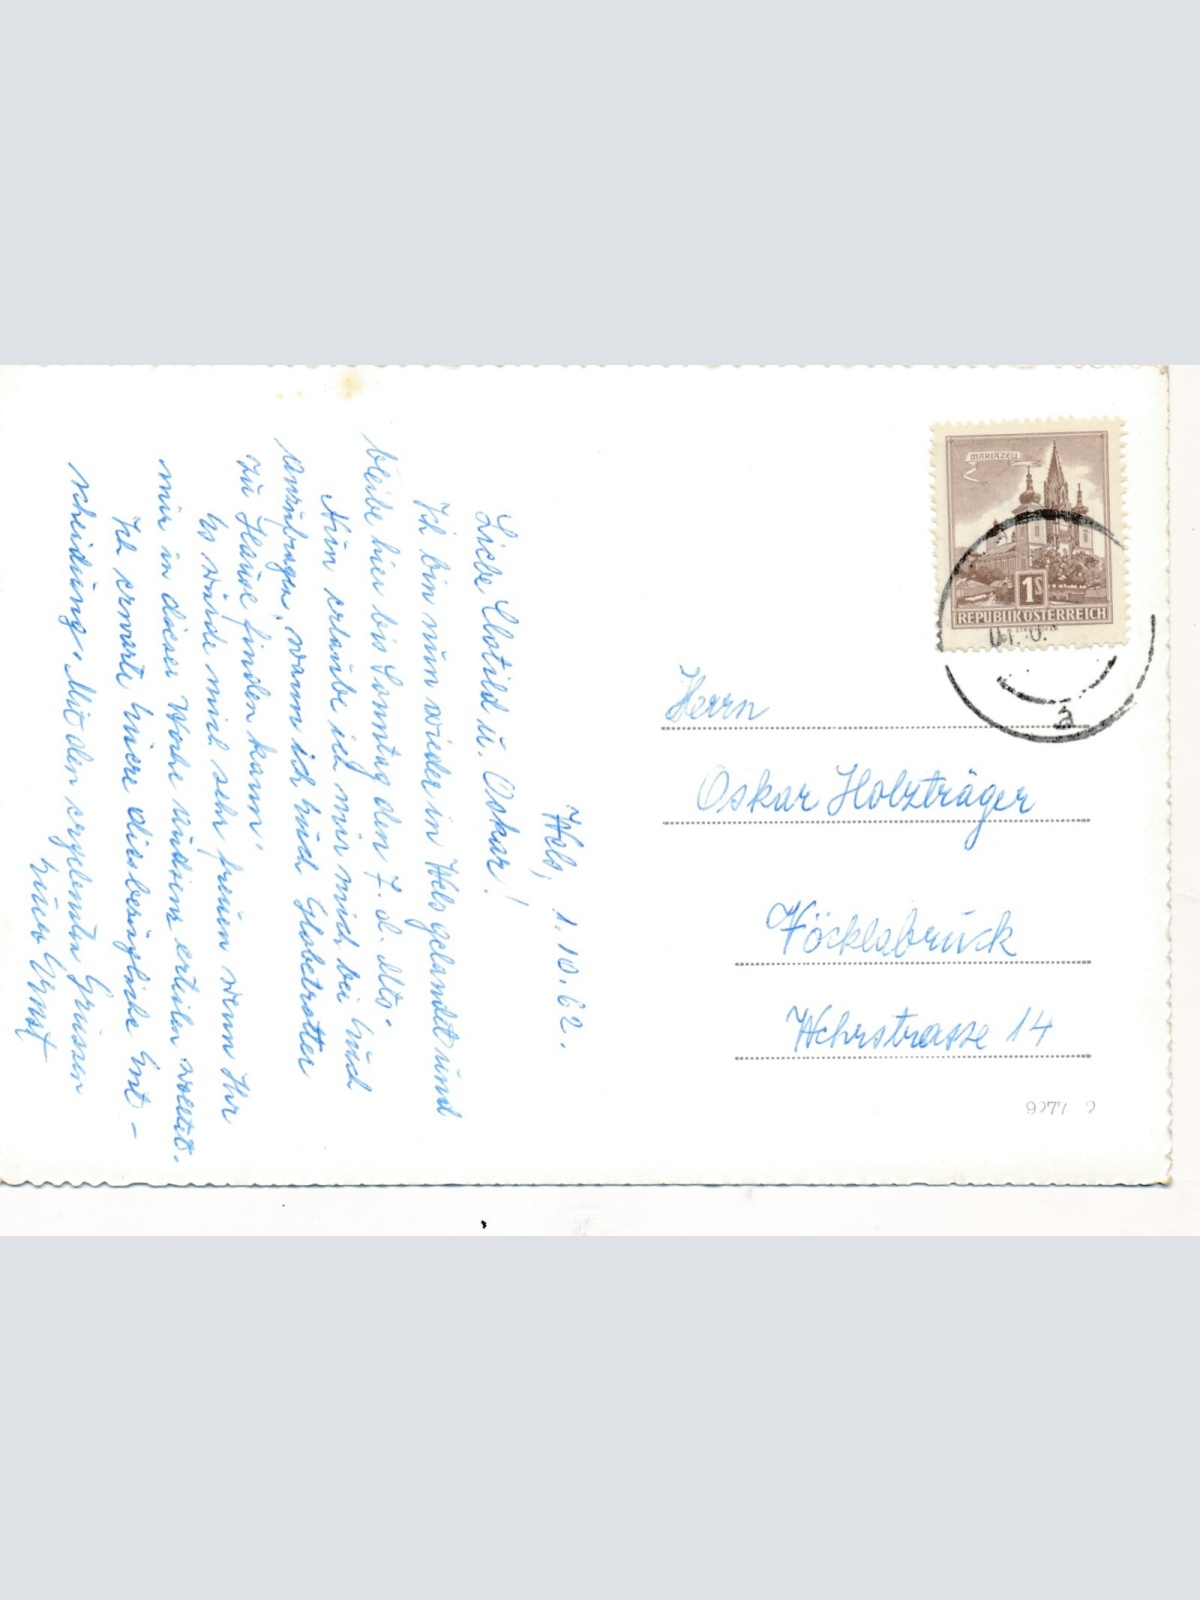 Wels, 1.10.62.
Liebe Clotild u. Oskar!
Ich bin nun wieder in Wels gelandet und
bleibe hier bis Sonntag den 7. d. Mts.
Nun erlaube ich mir mich bei Euch
anzufragen, wann ich Euch Globetrotter
zu Hause finden kann.
Es würde mich sehr freuen wenn Ihr
mir in dieser Woche Audienz erteilen wolltet.
Ich erwarte Euere diesbezügliche Ent-
scheidung. Mit den ergebensten Grüssen
Euer Ernst
MARIAZELL
1S
REPUBLIK ÖSTERREICH
a
Herrn
Oskar Holzträger
Vöcklabruck
Wehrstrasse 14